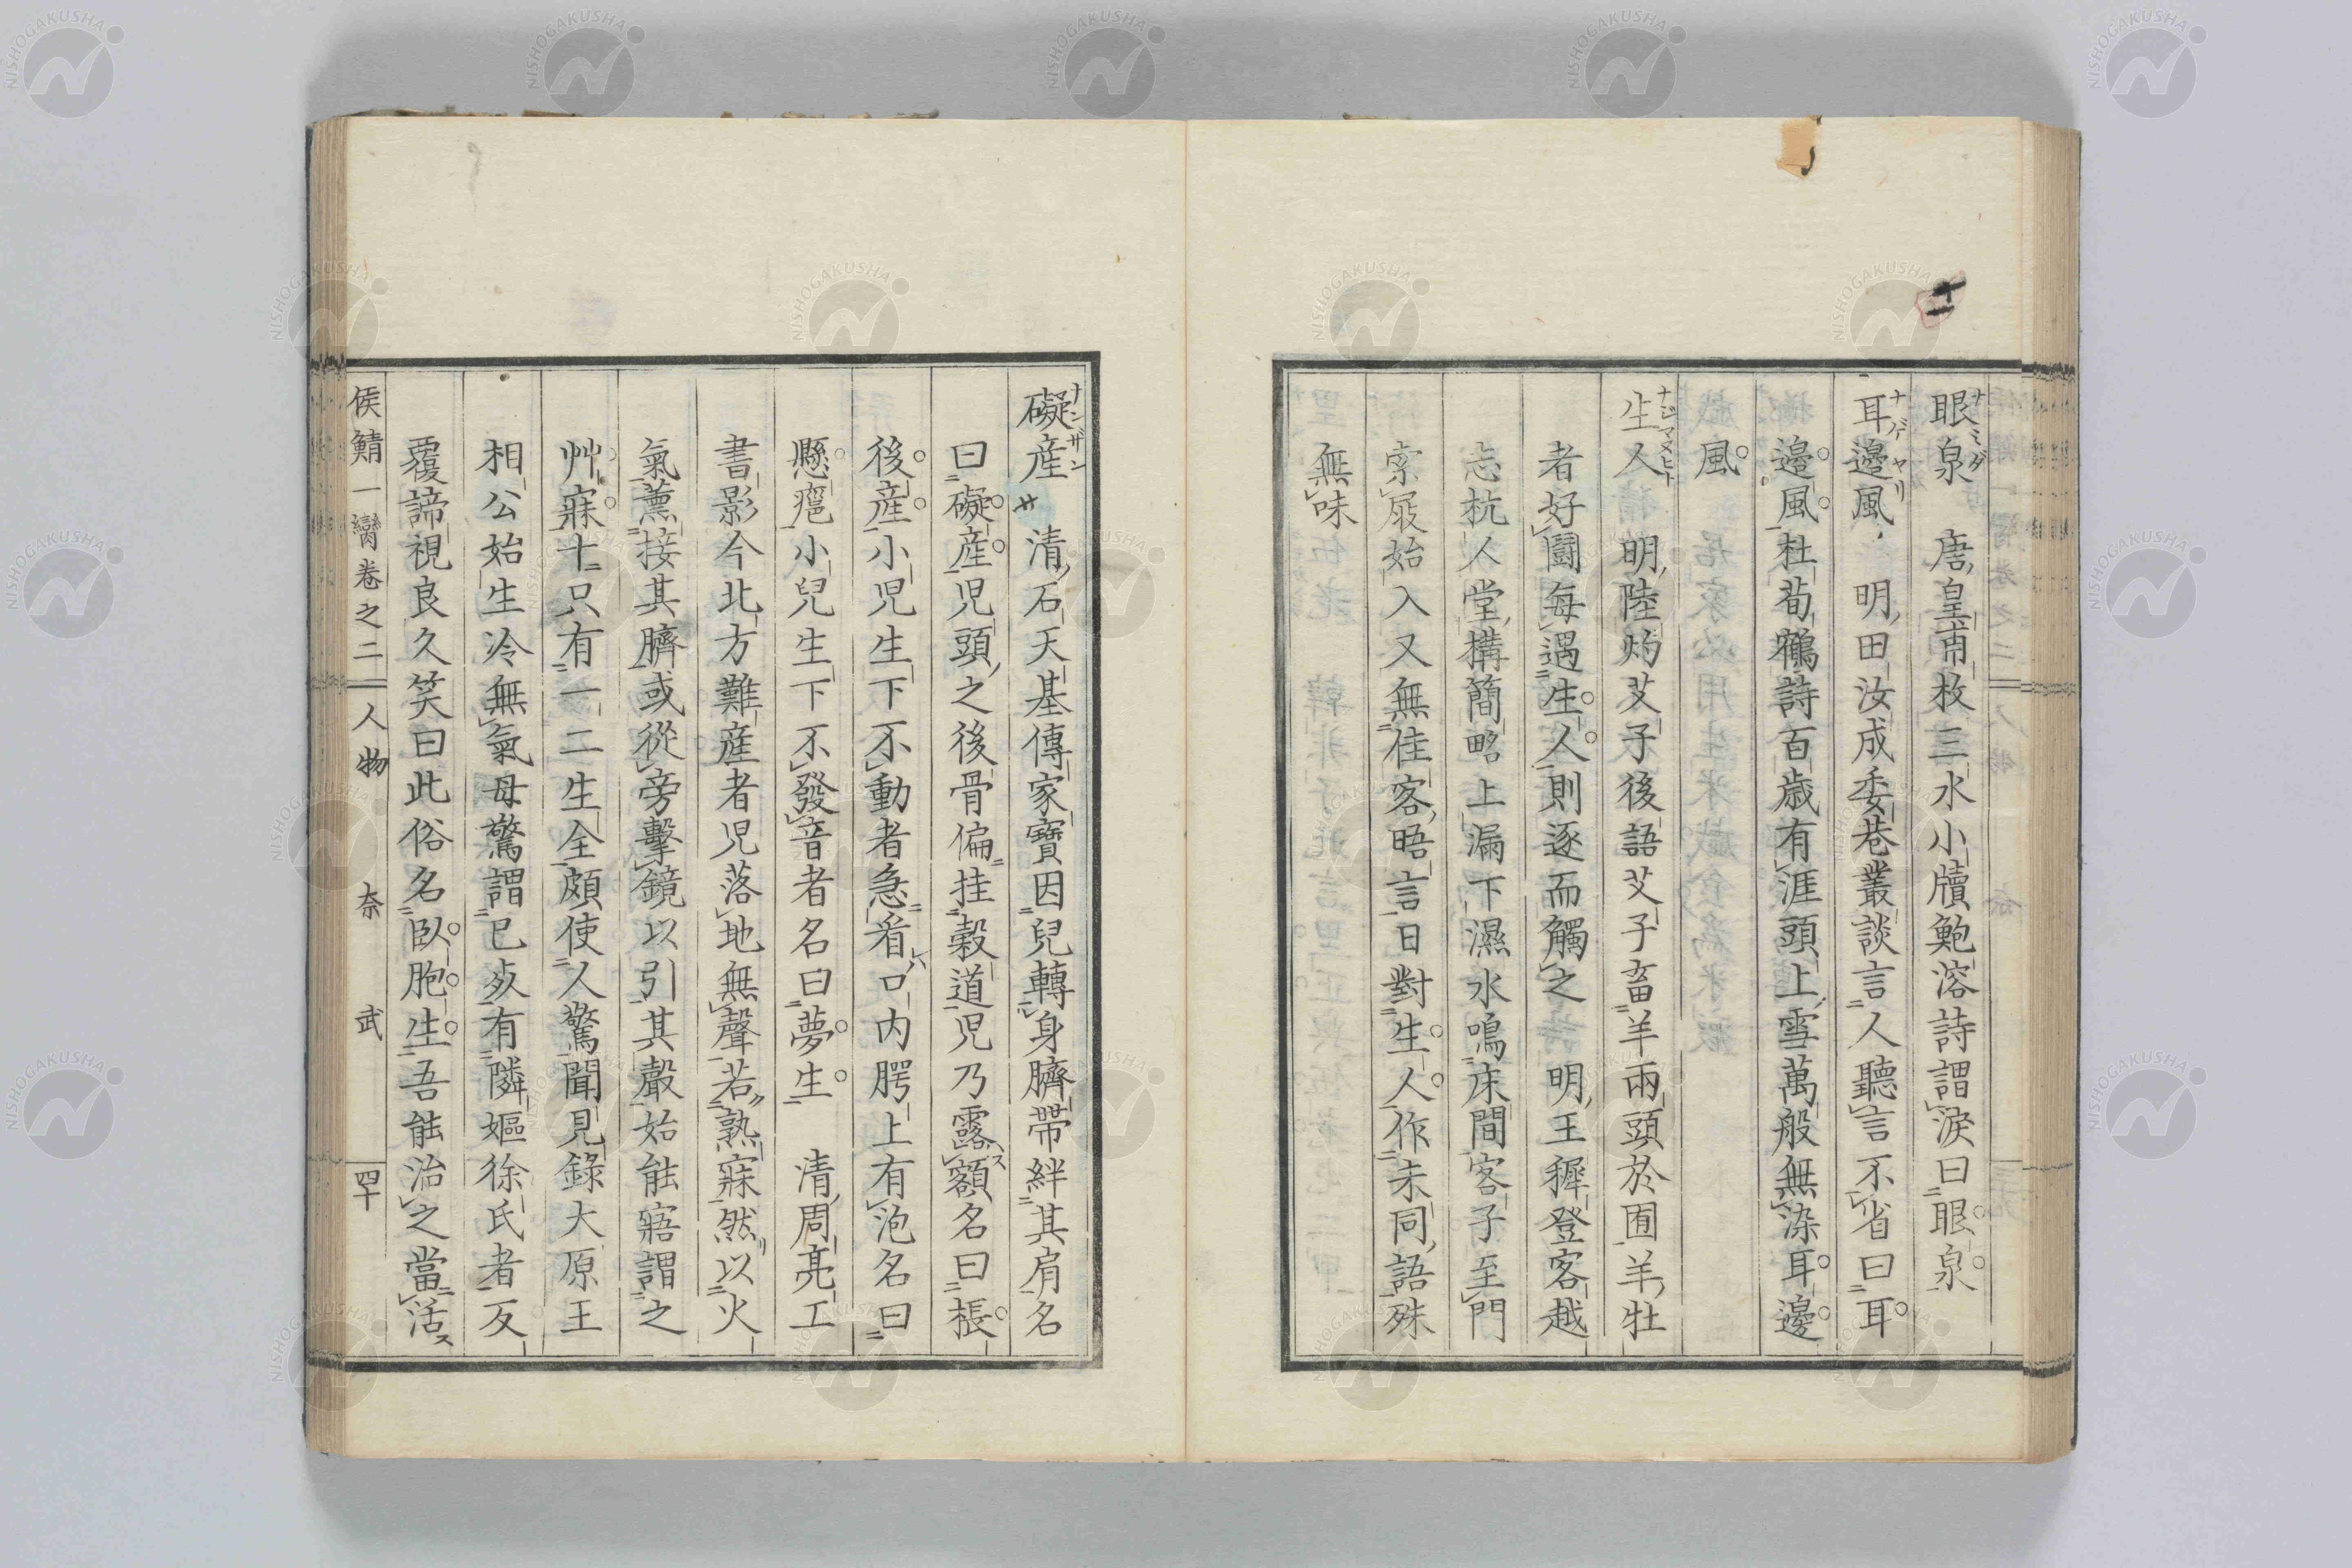 十二
眼泉　唐皇甫枚三水小牘鮑溶詩謂淚曰眼泉
耳邊風　明田汝成委巷叢談言人聽言不省曰耳
邊風杜荀鶴詩百歲有涯頭上雪萬般無染耳邊
風
生人　明陸灼艾子後語艾子畜羊兩頭於囿羊牡
者好鬪每遇生人則逐而觸之　明王穉登客越
志杭人堂構簡略上漏下濕水鳴床間客子至門
索屐始入又無佳客晤言日對生人作未同語殊
無味
礙産　清石天基傳家寶因兒轉身臍帶絆其肩名
曰礙産児頭之後骨偏拄穀道児乃露額名曰棖
後産小児生下不動者急看口内腭上有泡名曰
懸癰小兒生下不發音者名曰夢生　清周亮工
書影今北方難産者児落地無聲若熟寐然以火
氣薰接其臍或從旁擊鏡以引其聲始能寤謂之
艸寐十只有一二生全頗使人驚聞見錄大原王
相公始生冷無氣母驚謂已歿有隣嫗徐氏者反
覆諦視良久笑曰此俗名臥胞生吾能治之當活
侯鯖一臠卷之二　人物　奈　武　四十